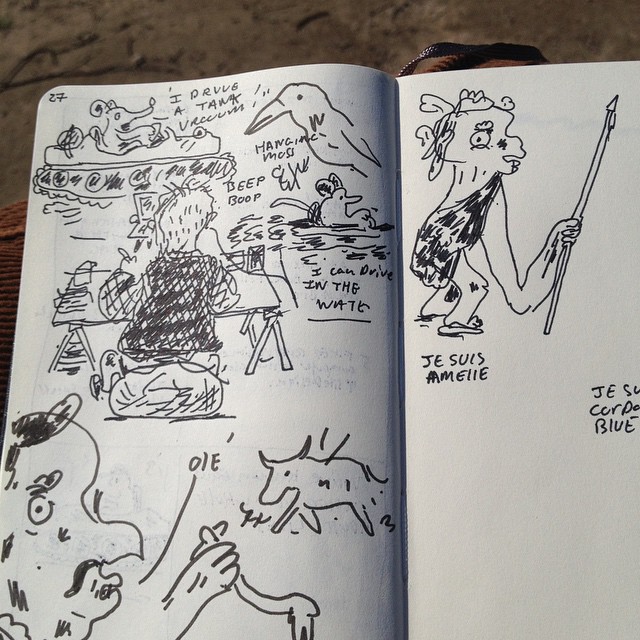 27
I DRIVE
A TANK
VACUUM!
HANGING
MOSS
BEEP
BOOP
I can DRIVE
IN THE
WATE
OlE'
JE SUIS
AMElIE
JE SU
CORDO
BLUE